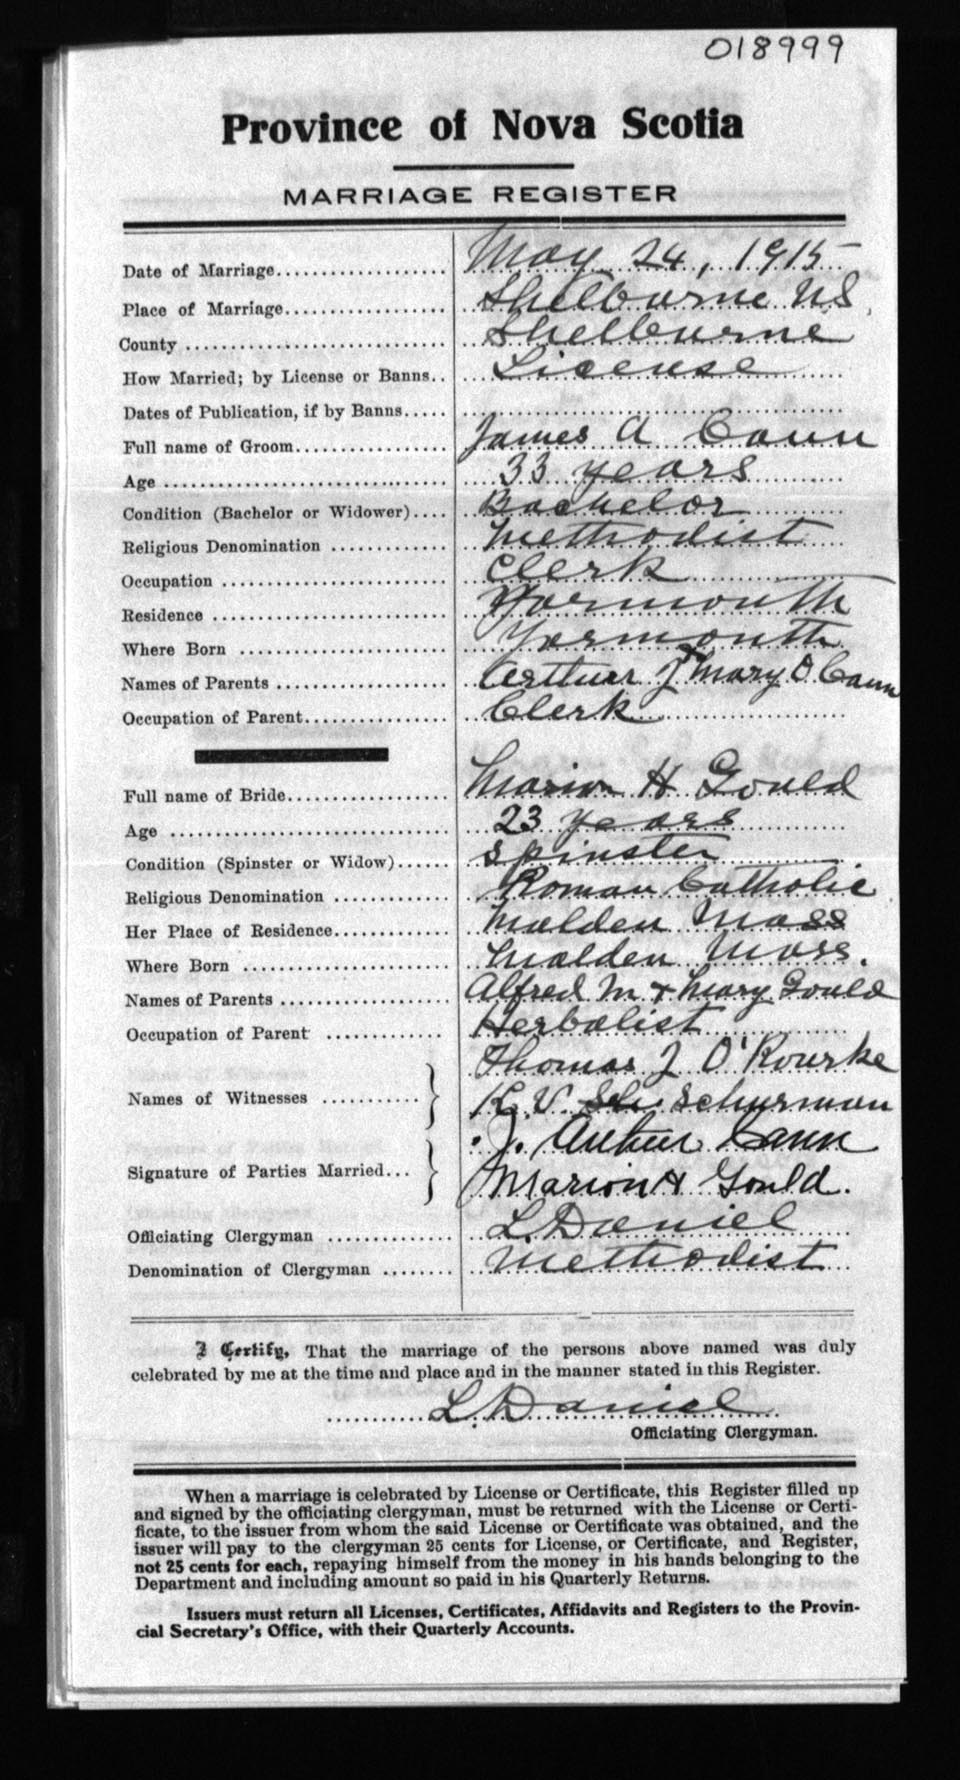 018999
Province of Nova Scotia
MARRIAGE REGISTER
Date of Marriage.................. May 24, 1915
Place of Marriage................. Shelburne N.S.
County ............................ Shelburne
How Married; by License or Banns.. License
Dates of Publication, if by Banns.....
Full name of Groom................ James A Cann
Age ............................... 33 years
Condition (Bachelor or Widower).... Bachelor
Religious Denomination ............ Methodist
Occupation ........................ Clerk
Residence ......................... Yarmouth
Where Born ........................ Yarmouth
Names of Parents .................. Arthur J + Mary O Cann
Occupation of Parent............... Clerk
Full name of Bride................. Marion H Gould
Age ............................... 23 years
Condition (Spinster or Widow)...... Spinster
Religious Denomination ............ Roman Catholic
Her Place of Residence............. Malden Mass
Where Born ........................ Malden Mass.
Names of Parents .................. Alfred M + Mary Gould
Occupation of Parent ............. Herbalist
Thomas J O'Rourke
Names of Witnesses ........... } K. V. Schurman
J. Arthur Cann
Signature of Parties Married... } Marion H Gould.
Officiating Clergyman ............. L. Daniel
Denomination of Clergyman ........ Methodist
I Certify, That the marriage of the persons above named was duly
celebrated by me at the time and place and in the manner stated in this Register.
L. Daniel
Officiating Clergyman.
When a marriage is celebrated by License or Certificate, this Register filled up
and signed by the officiating clergyman, must be returned with the License or Certi-
ficate, to the issuer from whom the said License or Certificate was obtained, and the
issuer will pay to the clergyman 25 cents for License, or Certificate, and Register,
not 25 cents for each, repaying himself from the money in his hands belonging to the
Department and including amount so paid in his Quarterly Returns.
Issuers must return all Licenses, Certificates, Affidavits and Registers to the Provin-
cial Secretary's Office, with their Quarterly Accounts.